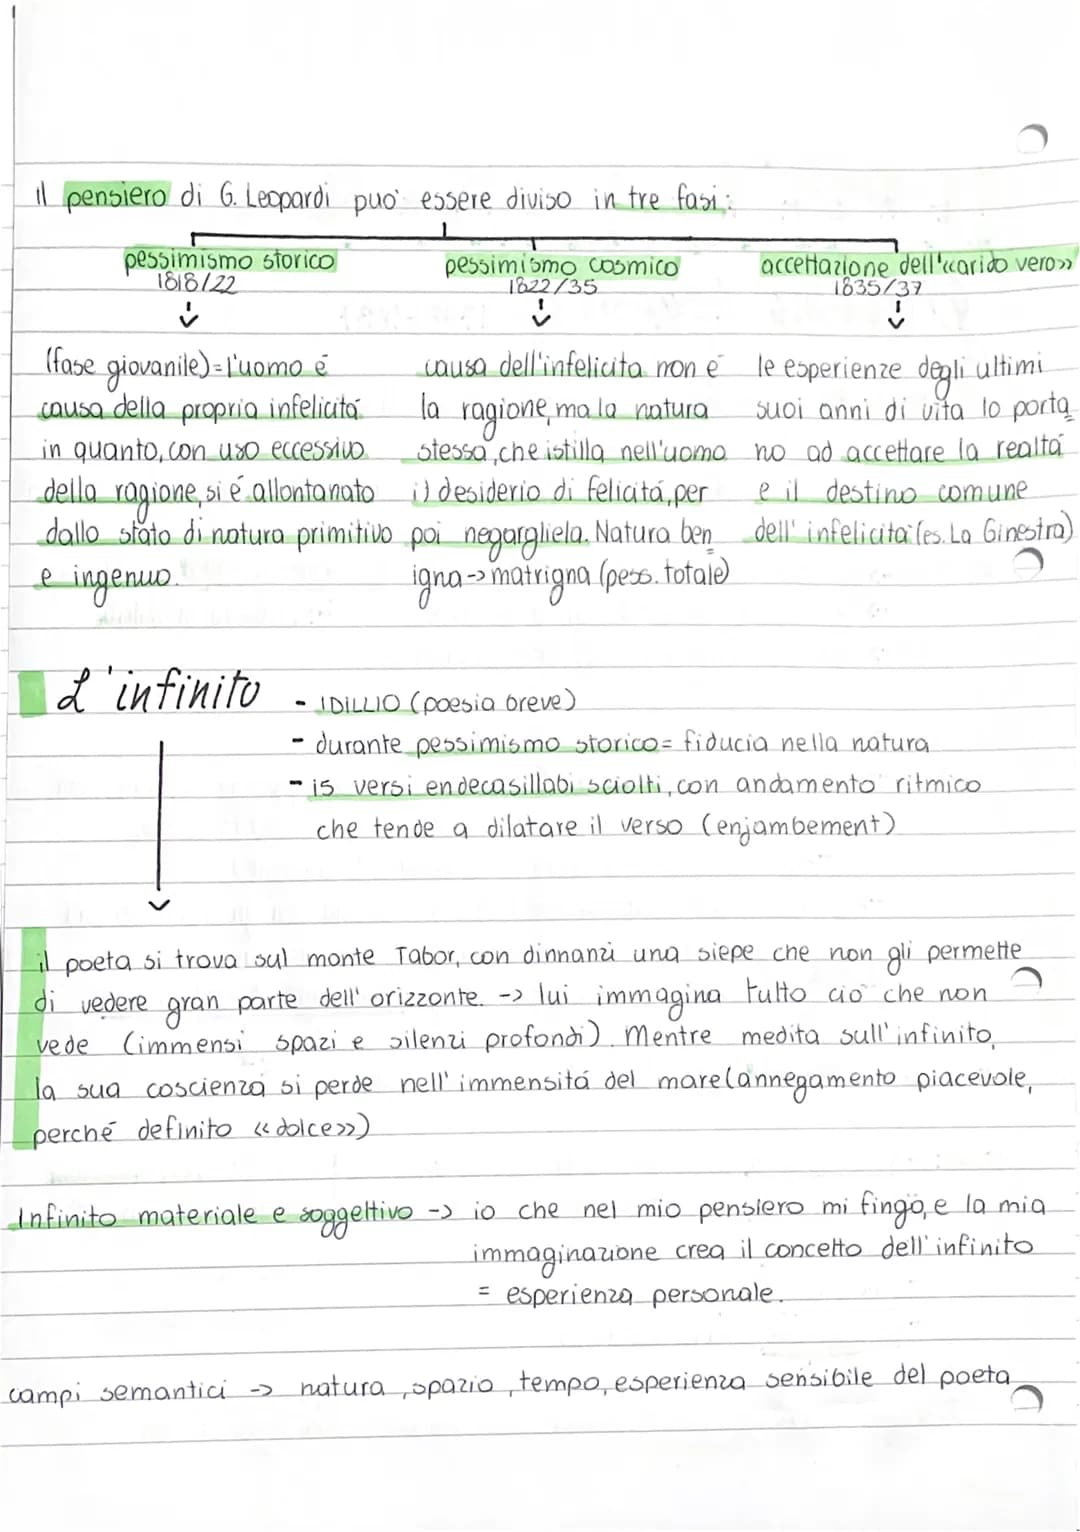 il pensiero di G. Leopardi può essere diviso in tre fasi:
pessimismo storico
1818/22
(fase giovanile)=l'uomo é
causa della propria infelicitá
in quanto, con uso eccessivo
della ragione, si é allontanato
dallo stato di natura primitivo
e ingenuo.
pessimismo cosmico
1822/35
causa dell'infelicita non é
la ragione, ma la natura
stessa, che istilla nell'uomo
il desiderio di felicitá, per
poi negargliela. Natura ben
igna -> matrigna (pess. totale)
accettazione dell'«arido vero»
1835/37
le esperienze degli ultimi
suoi anni di vita lo porta
no ad accettare la realtá
e il destino comune
dell'infelicitá (es. La Ginestra)
L'infinito
- IDILLIO (poesia breve)
- durante pessimismo storico= fiducia nella natura
- 15 versi endecasillabi sciolti, con andamento ritmico
che tende a dilatare il verso (enjambement)
il poeta si trova sul monte Tabor, con dinnanzi una siepe che non gli permette
di vedere gran parte dell'orizzonte. -> lui immagina tutto ciò che non
vede (immensi spazi e silenzi profondi). Mentre medita sull'infinito,
la sua coscienza si perde nell'immensitá del mare(annegamento piacevole,
perché definito «dolce»)
Infinito materiale e soggettivo -> io che nel mio pensiero mi fingo, e la mia
immaginazione crea il concetto dell'infinito
= esperienza personale.
campi semantici -> natura, spazio, tempo, esperienza sensibile del poeta